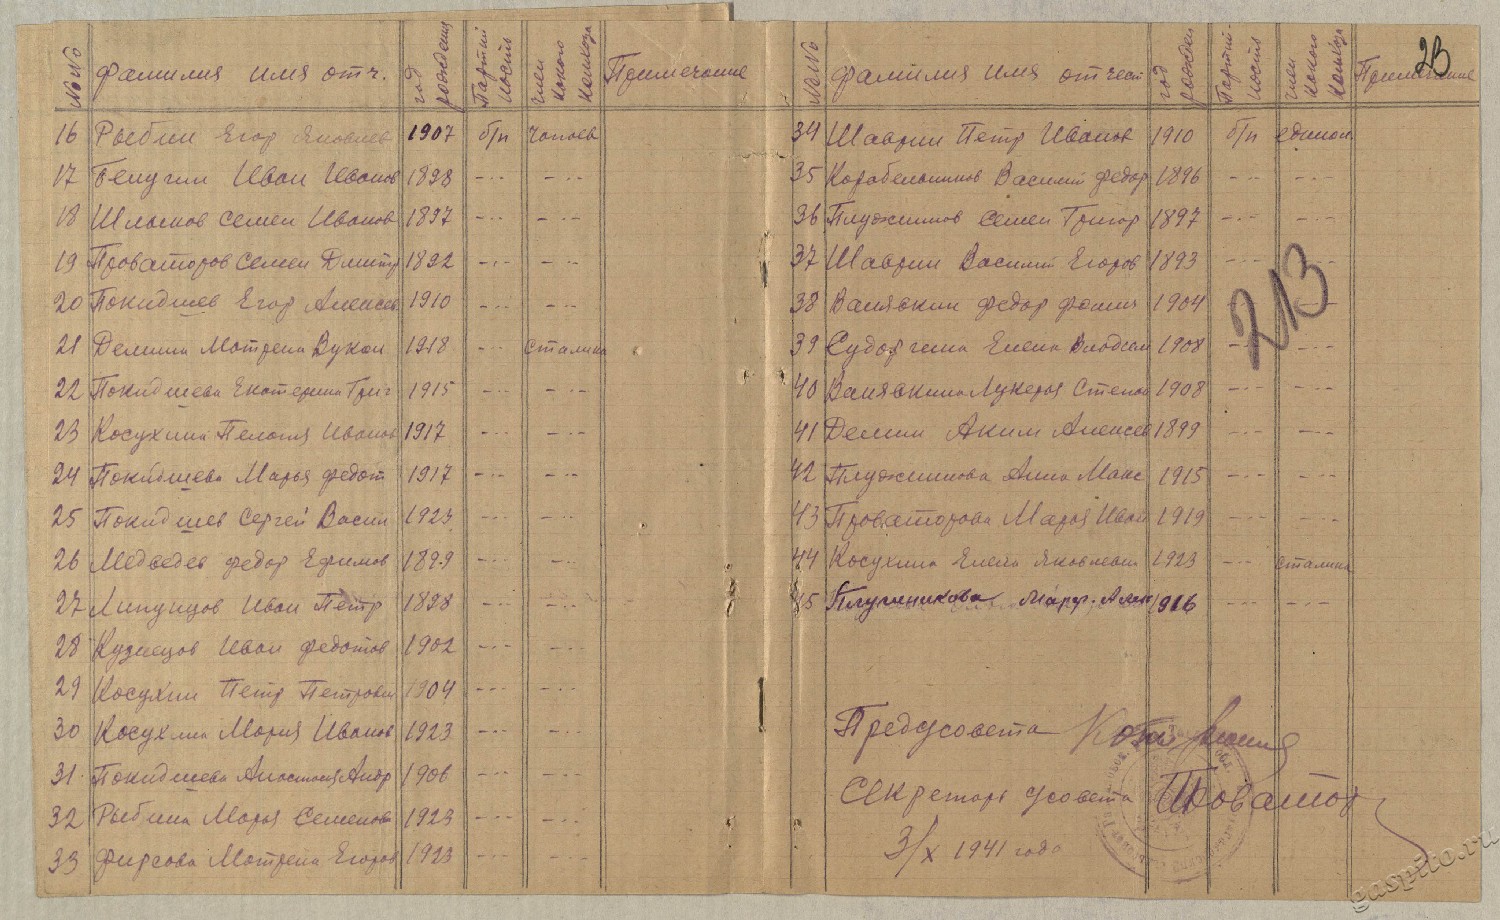 №№ Фамилия имя отч. год рождения Партийность член какого колхоза Примечание
16 Рыбин Егор Яковлев 1907 б/п Чапаев
17 Белугин Иван Иванов 1898 -..- -..-
18 Семен Иванов 1897 -..- -..-
19 Проваторов Семен Дмитр 1892 -..- -..-
20 Покидышев Егор Алексев 1910 -..- -..-
21 Демина Матрена Вукол 1918 -..- сталина
22 Покидышева Екатерина Григ 1915 -..- -..-
23 Косухина Пелагия Иванов 1917 -..- -..-
24 Покидышева Марья Федот 1917 -..- -..-
25 Покидышев Сергей Васил 1923 -..- -..-
26 Медведев Федор Ефимов 1899 -..- -..-
27 Иван Петр 1898 -..- -..-
28 Кузнецов Иван Федотов 1902 -..- -..-
29 Косухин Петр Петрович 1904 -..- -..-
30 Косухина Мария Иванов 1923 -..- -..-
31 Покидышева Анастасия Андр 1906 -..- -..-
32 Рыбина Марья Семенова 1923 -..- -..-
33 Фирсова Матрена Егоров 1923 -..- -..-
23
№№ Фамилия имя отчест год рожден Партийность член какого колхоза Примечание
34 Шаврин Петр Иванов 1910 б/п
35 Карабельников Василий Федор 1896 -..- -..-
36 Плужников Семен Григор 1897 -..- -..-
37 Шаврин Василий Егоров 1893 -..- -..-
38 Валявкин Федор Фомич 1904 -..- -..-
213
39 Елена 1908 -..- -..-
40 Валявкина Лукерья Степан 1908 -..- -..-
41 Демин Аким Алексев 1899 -..- -..-
42 Плужникова Анна Макс 1915 -..- -..-
43 Проваторова Марья Иван 1919 -..- -..-
44 Косухина Елена Яковлевна 1923 -..- сталина
45 1916 -..- -..-
Предсовета
Секретарь с/совета Проватор
3/X 1941 года
gaspito.ru